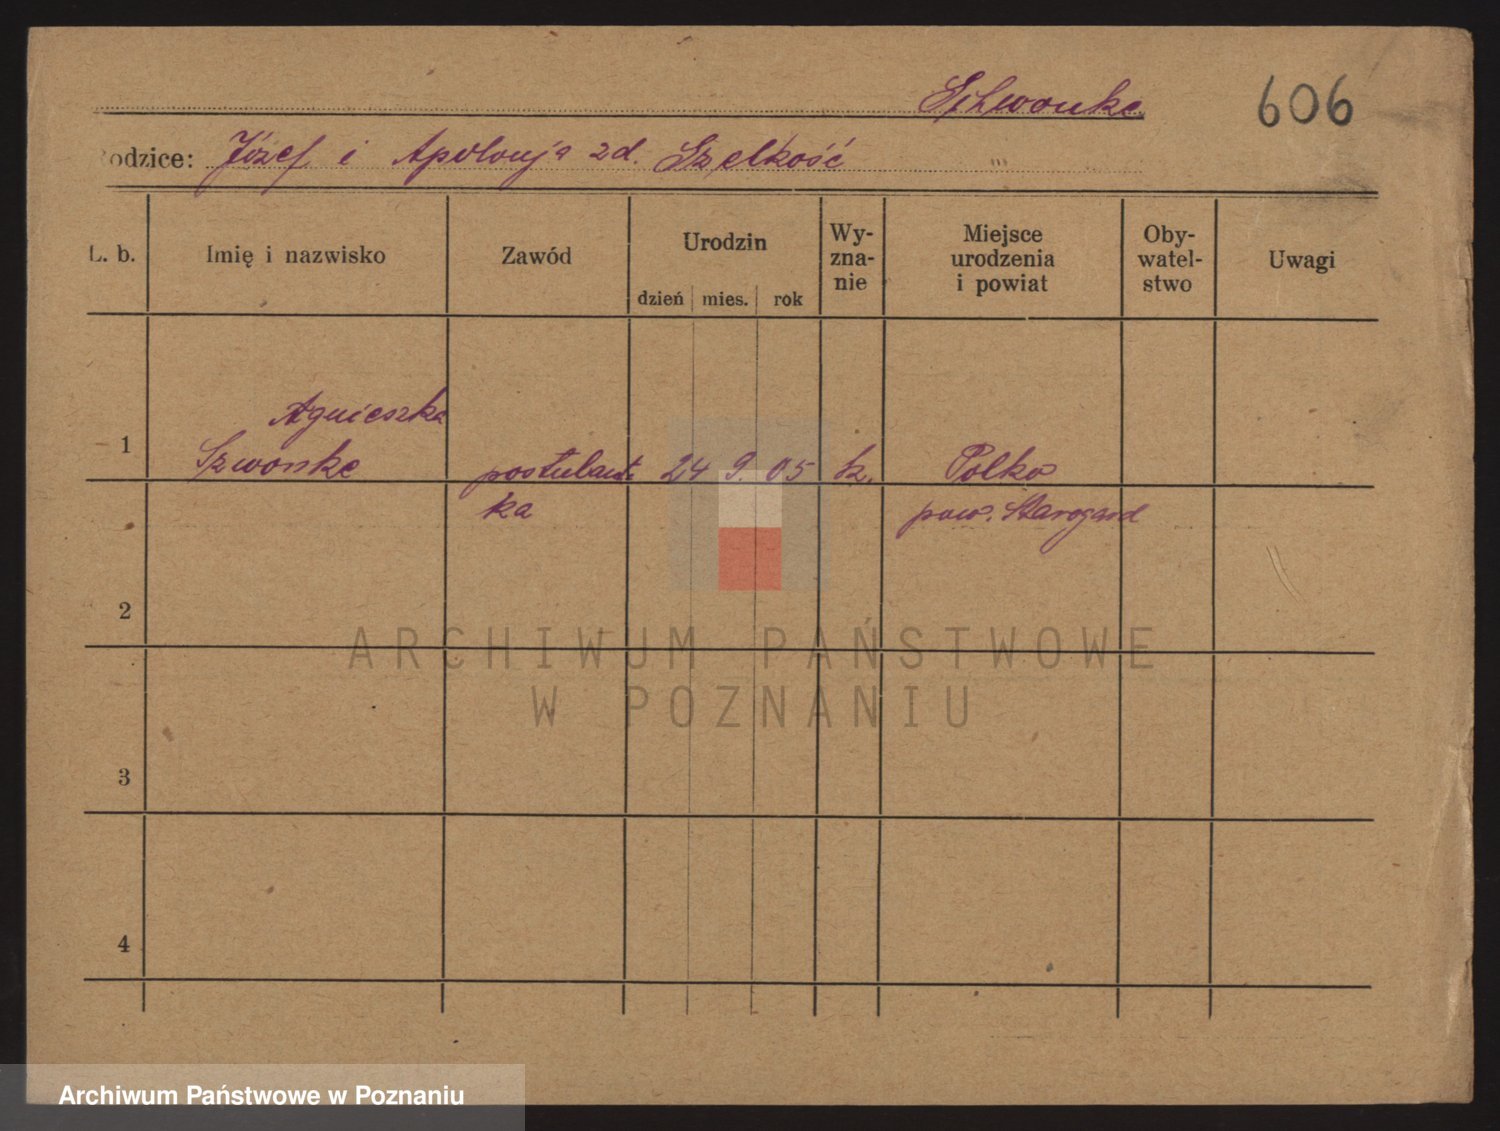 Schwonke 606
Rodzice: Józef i Apolonja zd. Szelkość
L. b. Imię i nazwisko Zawód Urodzin Wy-zna-nie Miejsce urodzenia i powiat Oby-watel-stwo Uwagi
dzień mies. rok
Agnieszka
1 Szwonke postulant- 24 9. 05 k. Polko
ka pow. Starogard
2
ARCHIWUM PAŃSTWOWE
W POZNANIU
3
4
Archiwum Państwowe w Poznaniu